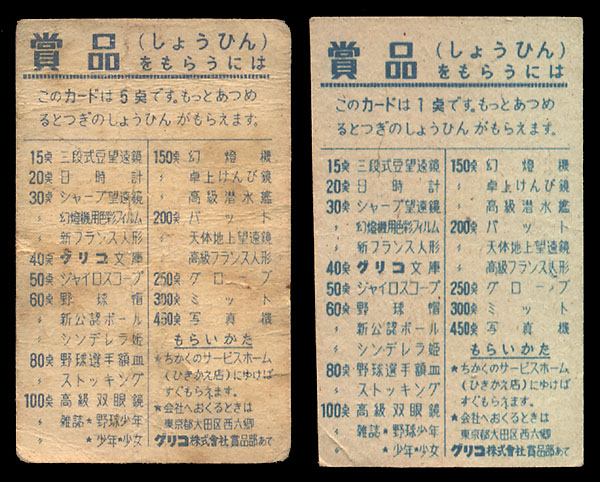 賞品(しょうひん)
をもらうには
このカードは5点です。もっとあつめ
るとつぎのしょうひんがもらえます。
15点 三段式豆望遠鏡
20点 日時計
30点 シャープ望遠鏡
〃 幻燈機用色彩フィルム
〃 新フランス人形
40点 グリコ文庫
50点 ジャイロスコープ
60点 野球帽
〃 新公認ボール
〃 シンデレラ姫
80点 野球選手額皿
〃 ストッキング
100点 高級双眼鏡
〃 雑誌★野球少年
〃 ★少年★少女
150点 幻燈機
〃 卓上けんび鏡
〃 高級潜水艦
200点 バット
〃 天体地上望遠鏡
〃 高級フランス人形
250点 グローブ
300点 ミット
450点 写真機
もらいかた
★ちかくのサービスホーム
(ひきかえ店)にゆけば
すぐもらえます。
★会社へおくるときは
東京都大田区西六郷
グリコ株式會社賞品部あて
賞品(しょうひん)
をもらうには
このカードは1点です。もっとあつめ
るとつぎのしょうひんがもらえます。
15点 三段式豆望遠鏡
20点 日時計
30点 シャープ望遠鏡
〃 幻燈機用色彩フィルム
〃 新フランス人形
40点 グリコ文庫
50点 ジャイロスコープ
60点 野球帽
〃 新公認ボール
〃 シンデレラ姫
80点 野球選手額皿
〃 ストッキング
100点 高級双眼鏡
〃 雑誌★野球少年
〃 ★少年★少女
150点 幻燈機
〃 卓上けんび鏡
〃 高級潜水艦
200点 バット
〃 天体地上望遠鏡
〃 高級フランス人形
250点 グローブ
300点 ミット
450点 写真機
もらいかた
★ちかくのサービスホーム
(ひきかえ店)にゆけば
すぐもらえます。
★会社へおくるときは
東京都大田区西六郷
グリコ株式會社賞品部あて